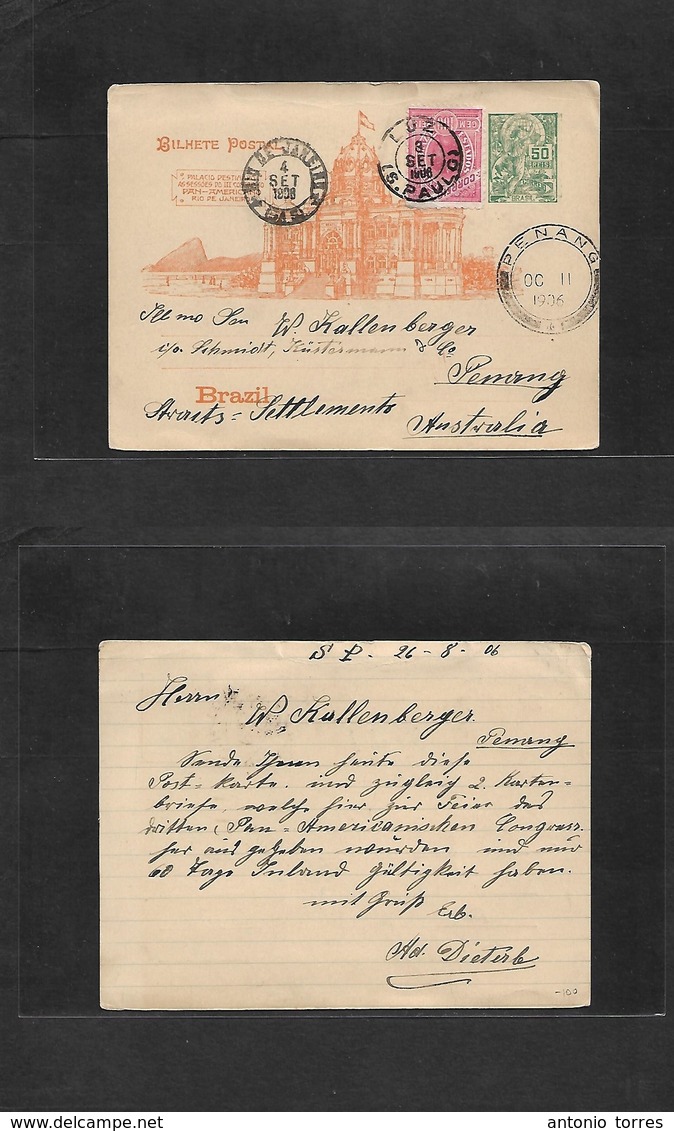 BILHETE POSTAL
O PALACIO DESTI
AS SESSÕES DO III CO
PAN-AMERI
RIO DE JANEI
RIO DE JANEIRO
4
SET
1906
LUZ
3
SET
1906
(S. PAULO)
CEM
50
REIS
BRASIL
PENANG
OC 11
1906
Illmo Snr W. Kallenberger
c/o. Schmidt, Küstermann & Co
Penang
Brazil
Straits = Settlements
Australia
S P. 26-8-06
Herrn
W Kallenberger.
Penang
Sende Ihnen heute diese
Post-karte. und zugleich 2. Karten-
briefe, welche hier zur Feier des
dritten, Pan-Americanischen Congress.
her aus gegeben wurden und nur
60 Tage Inland Gültigkeit haben.
mit Gruß
Erb.
Ad. Dieterb
-100
antonio torres